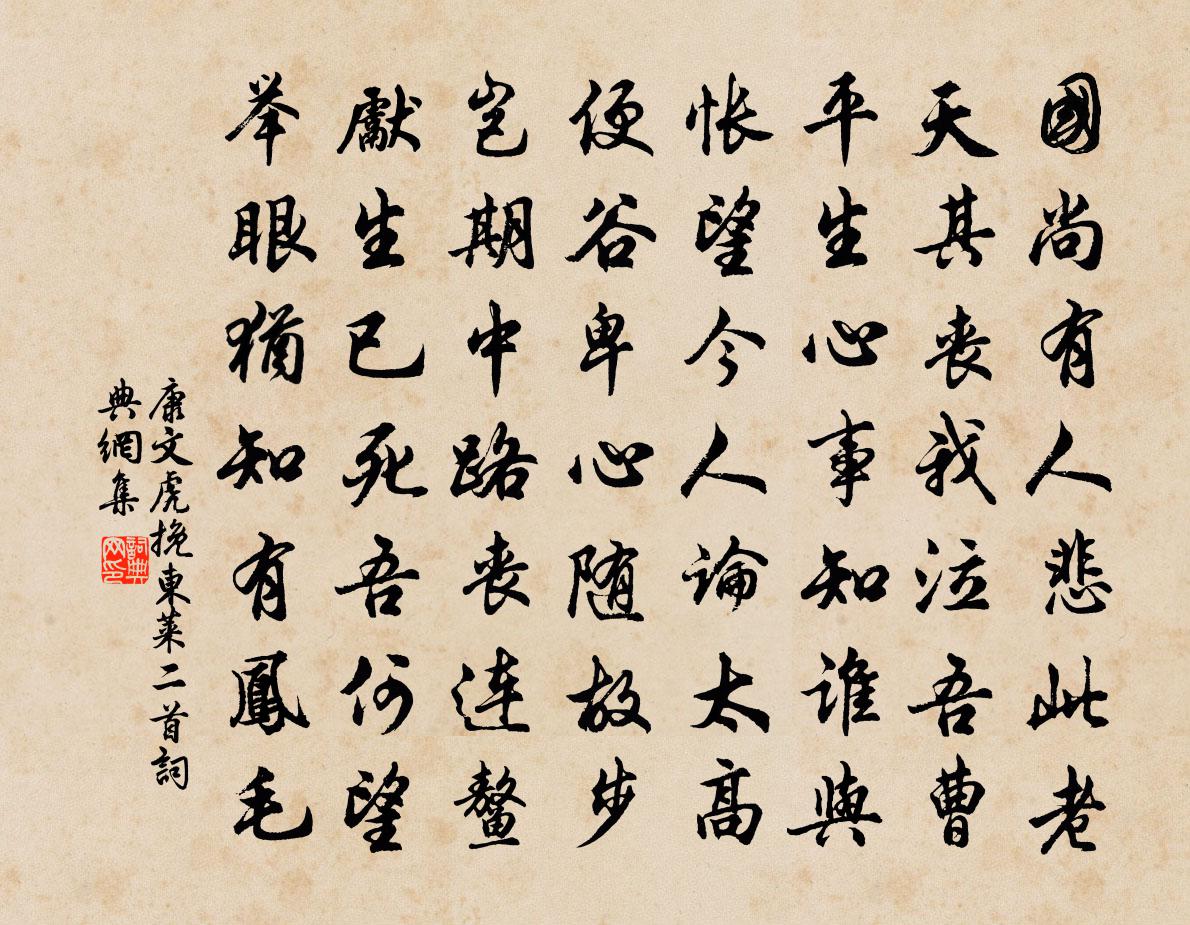 國尚有人悲此老
天其丧我泣吾曹
平生心事知谁與
怅望今人論太高
便谷卑心随故步
岂期中路丧连鳌
獻生已死吾何望
举眼猶知有鳳毛
康文虎挽東萊二首詞
典網集
詞典
网印